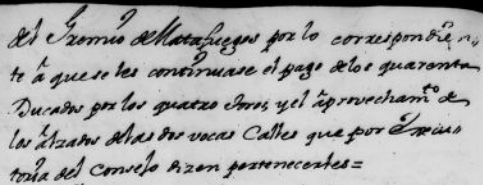 del Gremio de Matafuegos por lo correspondien-
te â que se les continuase el pago de los quarenta
Ducados por los quatro Años, y el âprovecham.to de
los âlzados de las dos vocas Calles que por êxecu
toria del Consejo dizen pertenecerles=